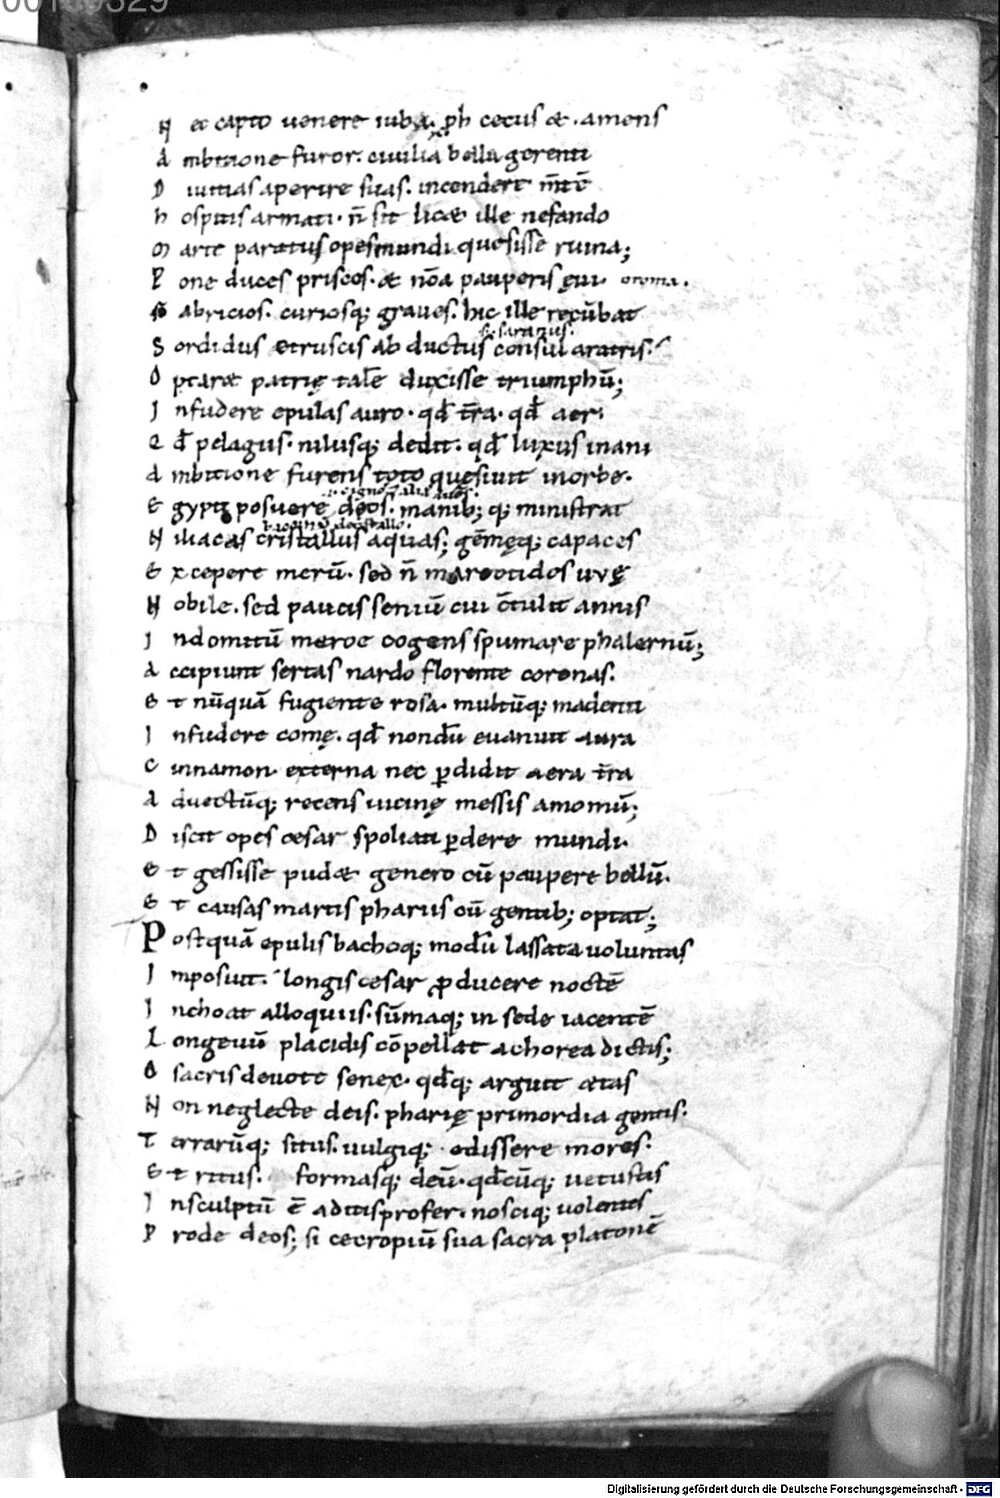 00139329
N ec capto uenere iuba. ph cecus & . amens
A mbitione furor. ciuilia bella gerenti
D iuitias aperire suas. incendere m̄tē
h ospitis armati. n̄ sit lic& ille nefando
M arte paratus opes mundi quesisse ruina;
P one duces priscos. & nōa pauperis ęui.
F abricios. curiosq; graues. hic ille recūbat
S ordidus etruscis ab ductus consul aratris.
O ptar& patrię talē duxisse triumphū;
I nfudere epulas auro. qd̄ t̄ra. qd̄ aer.
Q d̄ pelagus. nilusq; dedit. qd̄ luxus inani
A mbitione furens toto quesiuit in orbe.
E gypti posuere deos. manib; q; ministrat
N iliacas cristallus aquas; gēmęq; capaces
E xcepere merū. sed n̄ mareotidos uvę
N obile. sed paucis seniū cui c̄tulit annis
I ndomitū meroe cogens spumare phalernū;
A ccipiunt sertas nardo florente coronas.
E t nūquā fugiente rosa. multūq; madenti
I nfudere comę. qd̄ nondū euanuit aura
C innamon. externa nec ꝑdidit aera t̄ra
A duectūq; recens uicinę messis amomū;
D iscit opes cesar spoliati ꝑdere mundi.
E t gessisse pud& genero cū paupere bellū.
E t causas martis phariis cū gentib; optat;
P ostquā epulis bachoq; modū lassata uoluntas
I mposuit. longis cesar ꝓducere noctē
I nchoat alloquiis. sūmaq; in sede iacentē
L ongeuū placidis cōpellat achorea dictis;
O sacris deuote senex. qd̄q; arguit aetas
N on neglecte deis. pharię primordia gentis.
T errarūq; situs. uulgiq; edissere mores.
E t ritus. formasq; deū. qd̄cūq; uetustis
I nsculptū ē aditis profer. nosciq; uolentis
P rode deos; si cecropiū sua sacra platonē
Digitalisierung gefördert durch die Deutsche Forschungsgemeinschaft - DFG